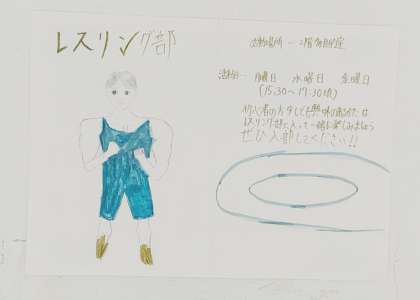 レスリング部
活動場所 ー 2階
活動日 ー 月曜日 水曜日 金曜日
(15:30〜17:30頃)
初心者の方 少しでも興味の
レスリング部に入って一緒に楽しみましょう
ぜひ入部してください!!